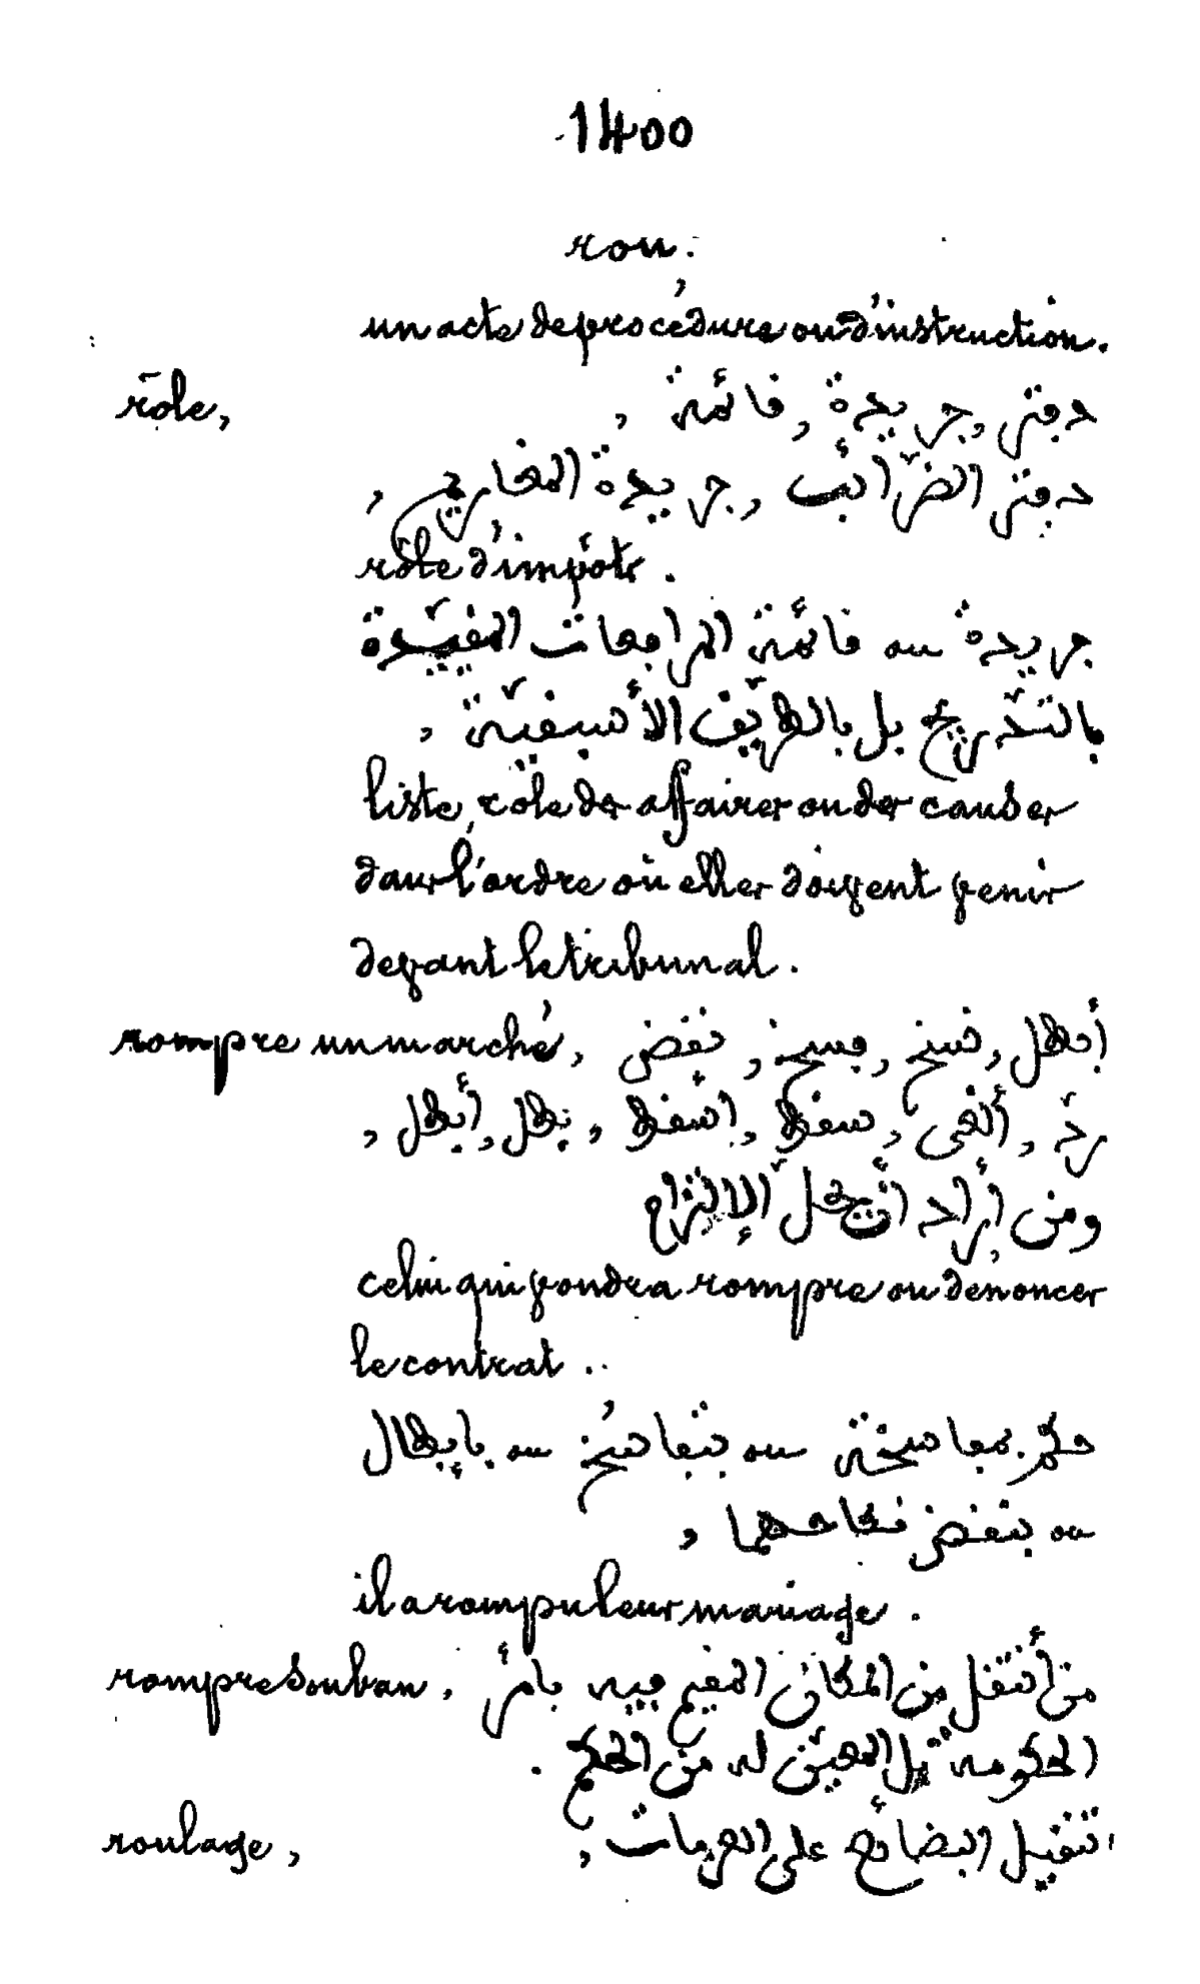 1400
rou.
un acte de procédure ou d'instruction.
rôle, دفتر, جريدة, قائمة,
دفتر الضرائب, جريدة المغاريم,
rôle d'impôts.
جريدة س قائمة المرافعات المقيّدة
بالتدريج بل بالطريق الأسبقيّة,
liste, rôle des affaires ou des causes
dans l'ordre où elles doivent venir
devant le tribunal.
rompre un marché, أبطل, فسخ, فسخ, نقض,
ردّ, ألغى, سقط, اسقط, بطل, أبطل,
ومن أراد الإلتزام
celui qui voudra rompre ou dénoncer
le contrat..
حكم بمفاسخة س بتفاسُخ س بإبطال
س بنقض نكاحهما,
il a rompu leur mariage.
rompre son ban. من أنتقل من المكان المقيم فيه بأمر
الحكومة قبل المعيّن له من الحكم.
roulage, تنقيل البضائع على العربات,